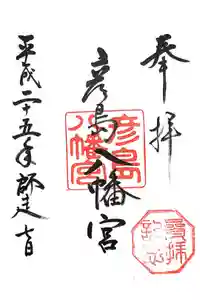 奉拝
彦島八幡宮
彦島
八幡宮
平成二十五年師走七日
参拝
記念